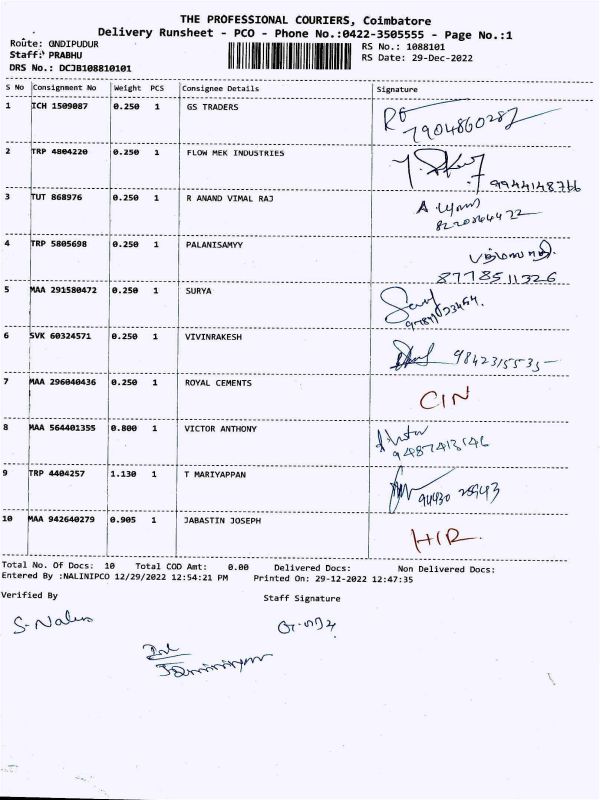 THE PROFESSIONAL COURIERS, Coimbatore
Delivery Runsheet - PCO - Phone No.:0422-3505555 - Page No.:1
Route: GNDIPUDUR
RS No.: 1088101
Staff: PRABHU
RS Date: 29-Dec-2022
DRS No.: DCJB108810101
S No Consignment No Weight PCS Consignee Details Signature
1 ICH 1509087 0.250 1 GS TRADERS
7904860287
2 TRP 4804220 0.250 1 FLOW MEK INDUSTRIES
9944148766
3 TUT 868976 0.250 1 R ANAND VIMAL RAJ
4 TRP 5805698 0.250 1 PALANISAMYY
8778511326
5 MAA 291580472 0.250 1 SURYA
6 SVK 60324571 0.250 1 VIVINRAKESH
9842315535
7 MAA 296040436 0.250 1 ROYAL CEMENTS
CIN
8 MAA 564401355 0.800 1 VICTOR ANTHONY
9487413146
9 TRP 4404257 1.130 1 T MARIYAPPAN
10 MAA 942640279 0.905 1 JABASTIN JOSEPH
HIR
Total No. Of Docs: 10 Total COD Amt: 0.00 Delivered Docs: Non Delivered Docs:
Entered By :NALINIPCO 12/29/2022 12:54:21 PM Printed On: 29-12-2022 12:47:35
Verified By Staff Signature
S. Nalini